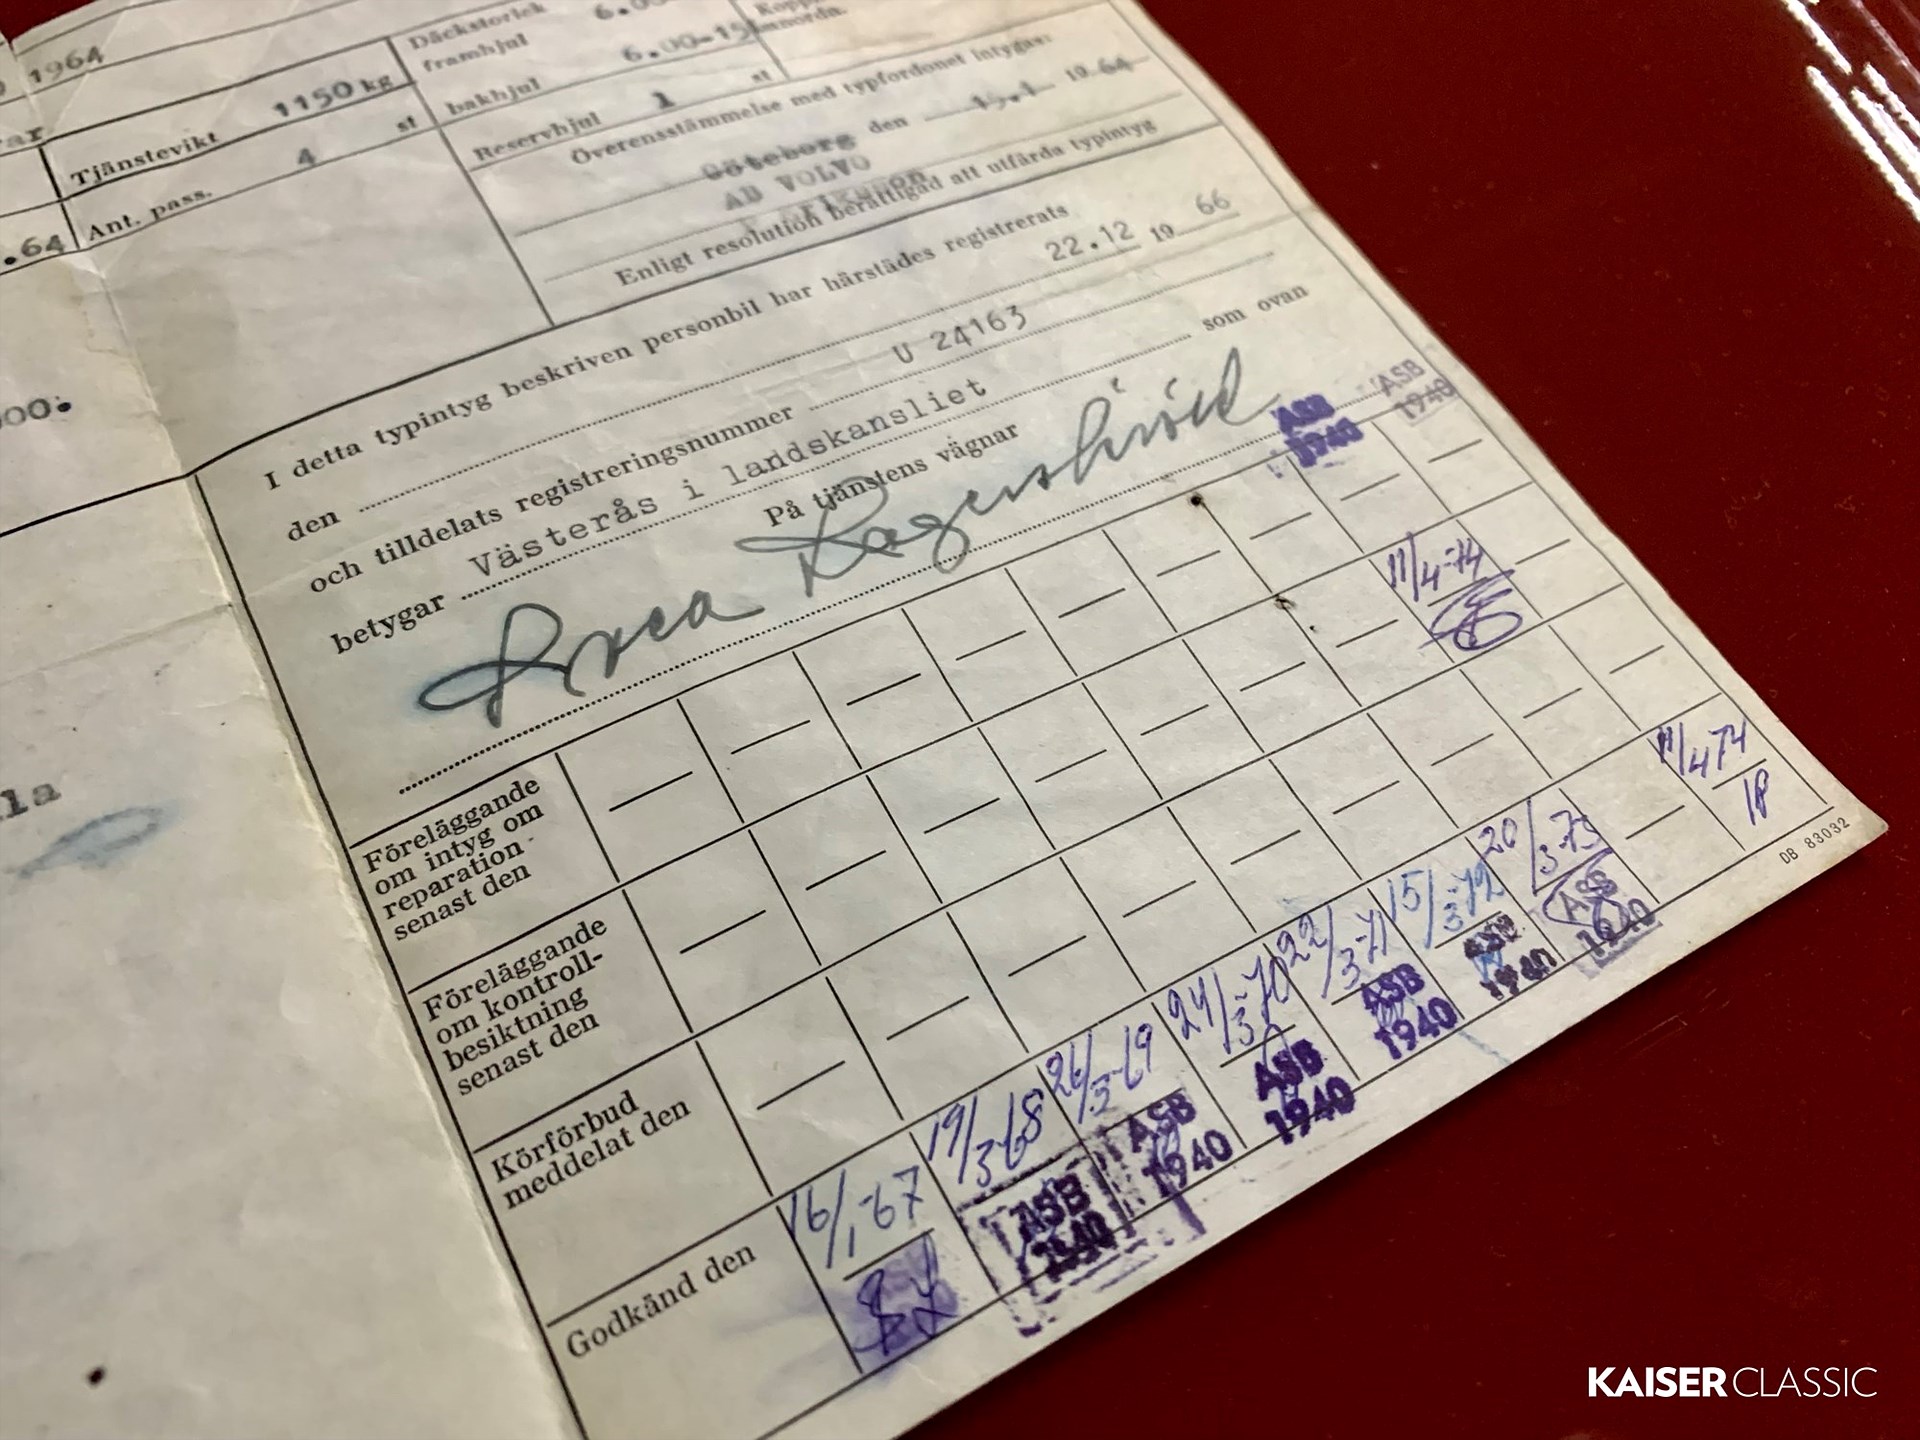 1964
Däckstorlek
framhjul
bakhjul 6.00-15
Reservhjul 1 st
Tjänstevikt 1150 kg
Ant. pass. 4 st
.64
Överensstämmelse med typfordonet intygas:
Göteborg den 15.1 1964
AB VOLVO
Enligt resolution berättigad att utfärda typintyg
I detta typintyg beskriven personbil har härstädes registrerats
den 22.12 19 66
och tilldelats registreringsnummer U 24163
betygar Västerås i landskansliet som ovan
På tjänstens vägnar
ASB
1940
ASB
1940
Föreläggande
om intyg om
reparation
senast den
11/4-74
Föreläggande
om kontroll-
besiktning
senast den
Körförbud
meddelat den
Godkänd den
16/1-67
19/3-68
ASB
1940
26/3-69
ASB
1940
24/3-70
ASB
1940
22/3-71
ASB
1940
15/3-72
ASB
1940
20/3-73
ASB
1940
11/4 74
DB 83032
000.
la
KAISER CLASSIC